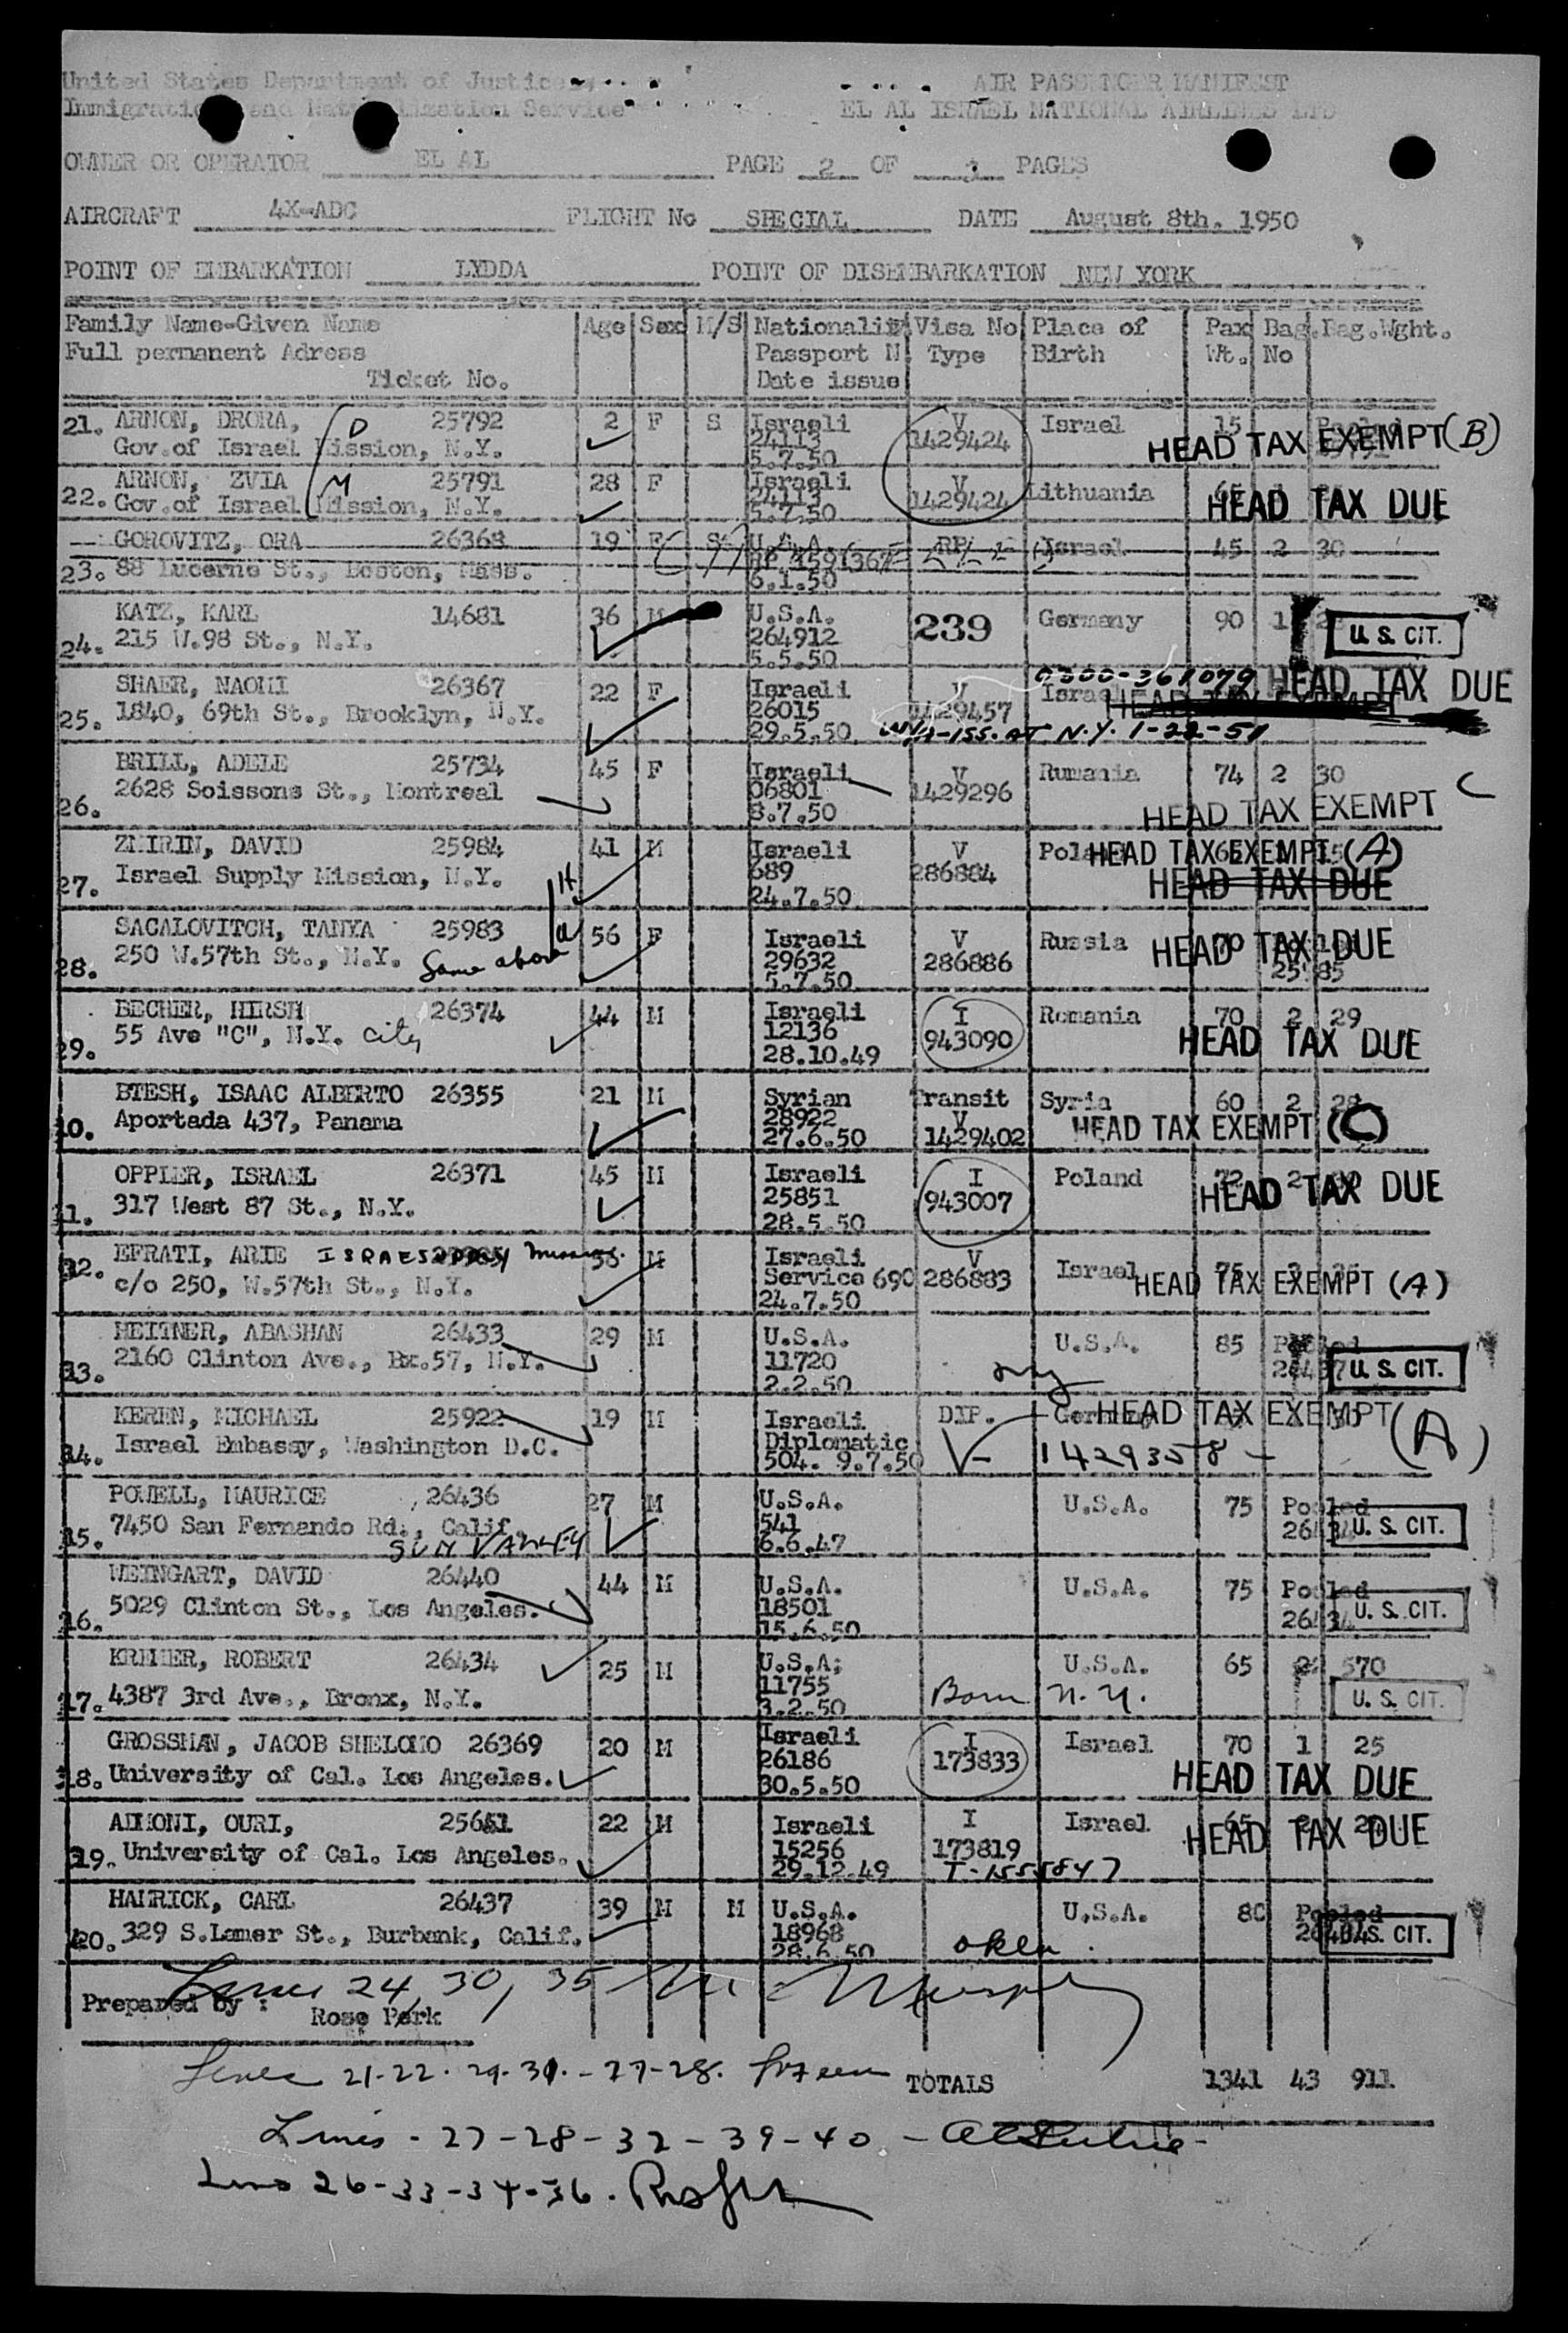 United States Department of Justice
AIR PASSENGER MANIFEST
Immigration and Naturalization Service
EL AL ISRAEL NATIONAL AIRLINES LTD
OWNER OR OPERATOR EL AL PAGE 2 OF PAGES
AIRCRAFT 4X-ADC FLIGHT No SPECIAL DATE August 8th. 1950
POINT OF EMBARKATION LYDDA POINT OF DISEMBARKATION NEW YORK
Family Name-Given Name Age Sex M/S Nationality Visa No Place of Pax Bag. Bag.Wght.
Full permanent Adress Passport N. Type Birth Wt. No
Ticket No. Date issue
21. ARNON, DRORA, D 25792 2 F S Israeli V Israel 15 Pooled
Gov.of Israel Mission, N.Y. 24113 1429424 HEAD TAX EXEMPT (B)
5.7.50
22. ARNON, ZVIA M 25791 28 F Israeli V Lithuania 65
Gov.of Israel Mission, N.Y. 24113 1429424 HEAD TAX DUE
5.7.50
GOROVITZ, ORA 26368 19 F S U.S.A. RP Israel 45 2 30
23. 88 Lucerne St., Boston, Mass.
6.1.50
KATZ, KARL 14681 36 M U.S.A. 239 Germany 90 1
24. 215 W.98 St., N.Y. 264912 U. S. CIT.
5.5.50
0300-361079 HEAD TAX DUE
SHAER, NAOMI 26367 22 F Israeli V Israel HEAD TAX EXEMPT
25. 1840, 69th St., Brooklyn, N.Y. 26015 1429457
29.5.50 ISS. AT N.Y. 1-22-51
BRILL, ADELE 25734 45 F Israeli V Rumania 74 2 30
26. 2628 Soissons St., Montreal 06801 1429296 HEAD TAX EXEMPT C
8.7.50
ZMIRIN, DAVID 25984 41 M Israeli V Poland HEAD TAX EXEMPT (A)
27. Israel Supply Mission, N.Y. 689 286884 HEAD TAX DUE
24.7.50
SACALOVITCH, TANYA 25983 56 F Israeli V Russia HEAD TAX DUE
28. 250 W.57th St., N.Y. Same above 29632 286886 25 85
5.7.50
BECHER, HIRSH 26374 44 M Israeli I Romania 70 2 29
29. 55 Ave "C", N.Y. City 12136 943090 HEAD TAX DUE
28.10.49
BTESH, ISAAC ALBERTO 26355 21 M Syrian Transit Syria 60 2 28
30. Aportada 437, Panama 28922 V HEAD TAX EXEMPT (C)
27.6.50 1429402
OPPLER, ISRAEL 26371 45 M Israeli I Poland 72 2
31. 317 West 87 St., N.Y. 25851 943007 HEAD TAX DUE
28.5.50
32. EFRATI, ARIE 58 M Israeli V Israel
c/o 250, W.57th St., N.Y. Service 690 286883 HEAD TAX EXEMPT (A)
24.7.50
HEITNER, ABASHAN 26433 29 M U.S.A. U.S.A. 85 Pooled
33. 2160 Clinton Ave., Bx.57, N.Y. 11720 U. S. CIT.
2.2.50
KEREN, MICHAEL 25922 19 M Israeli DIP. Germany HEAD TAX EXEMPT (A)
34. Israel Embassy, Washington D.C. Diplomatic V- 1429358 -
504. 9.7.50
POWELL, MAURICE 26436 27 M U.S.A. U.S.A. 75 Pooled
35. 7450 San Fernando Rd., Calif. 541 U. S. CIT.
SUN VALLEY 6.6.47
WEINGART, DAVID 26440 44 M U.S.A. U.S.A. 75 Pooled
36. 5029 Clinton St., Los Angeles. 18501 U. S. CIT.
15.6.50
KREMER, ROBERT 26434 25 M U.S.A. U.S.A. 65 22 570
37. 4387 3rd Ave., Bronx, N.Y. 11755 Born N.Y. U. S. CIT.
3.2.50
GROSSMAN, JACOB SHELOMO 26369 20 M Israeli I Israel 70 1 25
38. University of Cal. Los Angeles. 26186 173833 HEAD TAX DUE
30.5.50
ADMONI, OURI, 25651 22 M Israeli I Israel 65 20
39. University of Cal. Los Angeles. 15256 173819 HEAD TAX DUE
29.12.49 T-1555847
HAMRICK, CARL 26437 39 M M U.S.A. U.S.A. 80 Pooled
40. 329 S.Lamer St., Burbank, Calif. 18968 U. S. CIT.
28.6.50
Lines 24, 30, 35 Murphy
Prepared by : Rose Perk
Lines 21-22-29-31-37-38.
TOTALS 1341 43 911
Lines - 27-28-32-39-40 -
Lines 26-33-34-36.